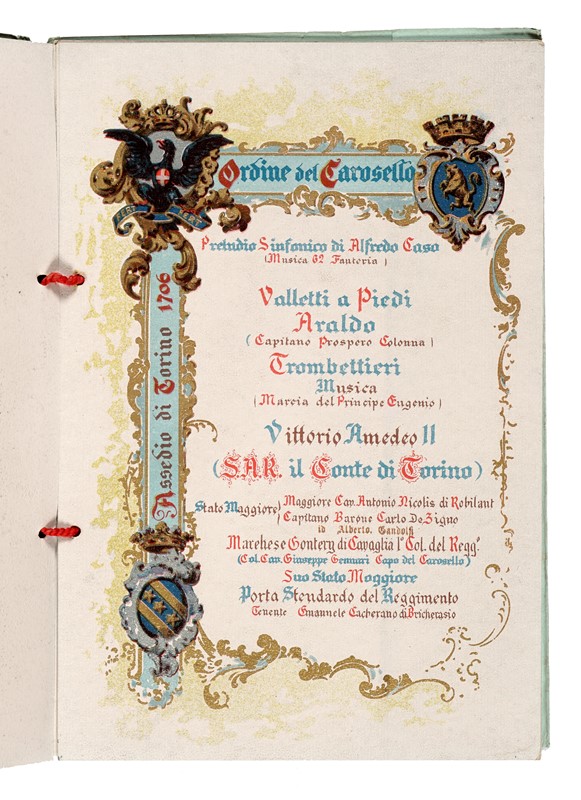 Ordine del Carosello
Assedio di Torino 1706
Preludio Sinfonico di Alfredo Caso
(Musica 62 Fanteria)
Valletti a Piedi
Araldo
(Capitano Prospero Colonna)
Trombettieri
Musica
(Marcia del Principe Eugenio)
Vittorio Amedeo II
(S.A.R. il Conte di Torino)
Stato Maggiore
Maggiore Cav. Antonio Nicolis di Robilant
Capitano Barone Carlo De Zigno
id Alberto. Gandolfi
Marchese Gontery di Cavaglia 1º Col. del Reggº.
(Col. Cav. Giuseppe Gennari Capo del Carosello)
Suo Stato Maggiore
Porta Stendardo del Reggimento
Tenente Emanuele Cacherano di Bricherasio